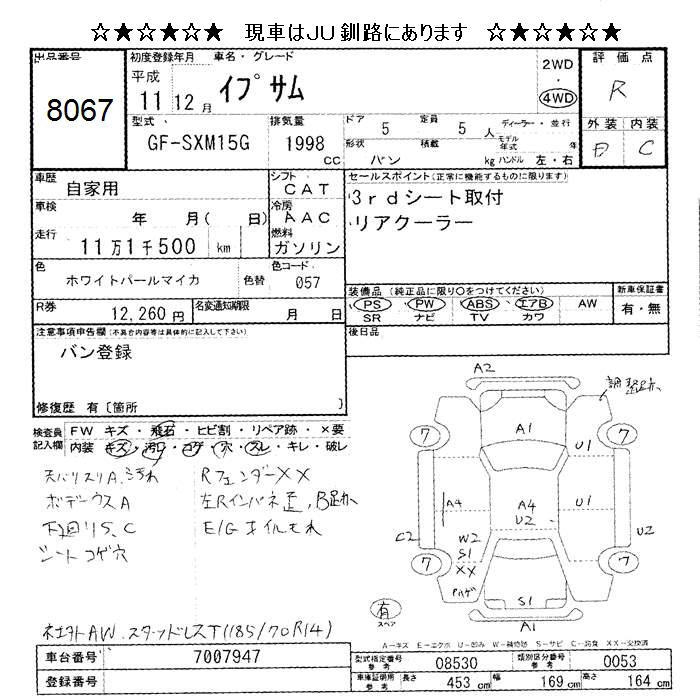 ☆★☆★☆★ 現車はJU釧路にあります ☆★☆★☆★
出品番号 8067
初度登録年月 平成 11 12月
車名・グレード イプサム
2WD
4WD
評価点 R
外装 内装
C
型式 GF-SXM15G
排気量 1998 cc
ドア 5
定員 5 人
ディーラー・並行
モデル年式 年
形状 バン
積載 kg
ハンドル 左・右
車歴 自家用
シフト CAT
車検 年 月( 日)
冷房 AAC
走行 11万1千500 km
燃料 ガソリン
色 ホワイトパールマイカ 色替
色コード 057
R券 12,260円
名変通知期限 月 日
セールスポイント(正常に機能するものに限ります)
3rdシート取付
リアクーラー
装備品 (純正品に限り○をつけてください)
PS PW ABS エアB AW
SR ナビ TV カワ
新車保証書
有・無
後日品
注意事項申告欄(不具合内容等は具体的に記入して下さい)
バン登録
修復歴 有〔箇所 〕
検査員記入欄
FW キズ・飛石・ヒビ割・リペア跡・×要
内装 キズ・汚レ・コゲ・穴・スレ・キレ・破レ
天バリスリA,汚れ
ボデーウスA
下廻りS,C
シートコゲ穴
RフェンダーXX
左Rインパネ歪,B
E/Gオイルモれ
AW.スタッドレスT(185/70R14)
A2
7
A1
7
U1
A4
A4
U2
U1
C2
U2
W2
S1
XX
7
7
ハゲ
S1
A1
有
スペア
A-キズ E-エクボ U-凹み W-補修跡 S-サビ C-腐食 XX-交換済
車台番号 7007947
登録番号
型式指定番号 参考 08530
類別区分番号 参考 0053
車庫証明用 参考 長さ 453 cm 幅 169 cm 高さ 164 cm